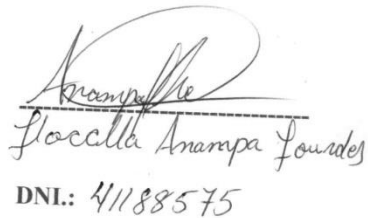 Flocclla Anampa Lourdes
DNI.: 41188575